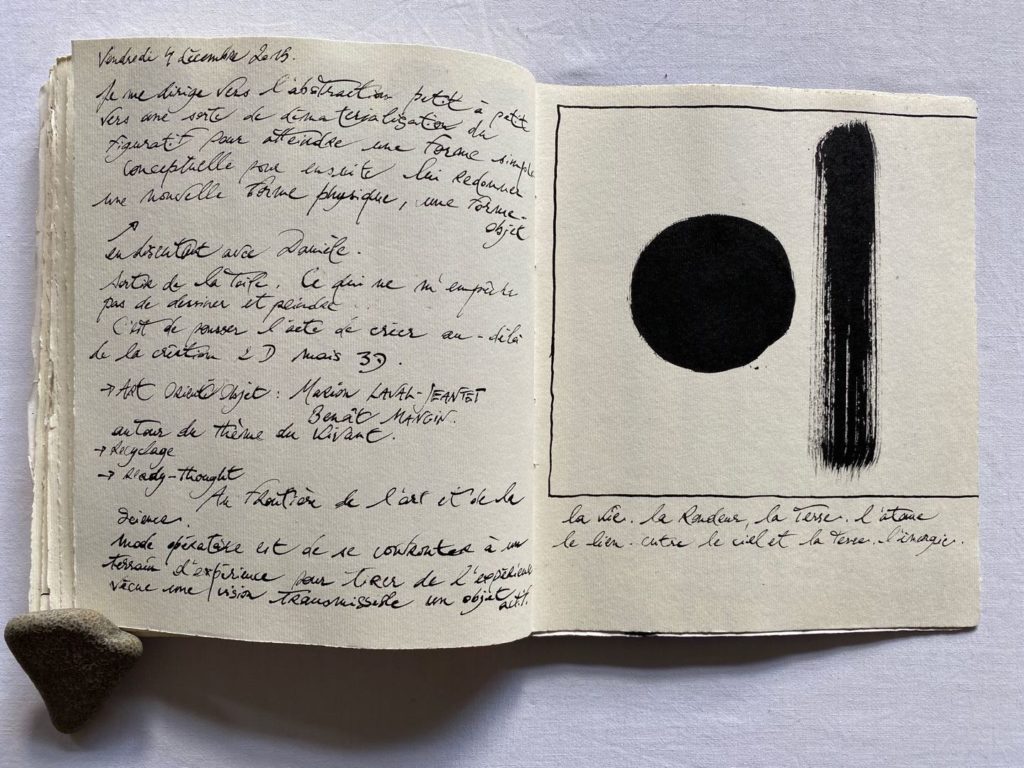 Vendredi 4 décembre 2015.
Je me dirige vers l'abstraction petit à petit
vers une sorte de dématerialisation du
figuratif pour atteindre une forme simple
conceptuelle pour ensuite lui redonner
une nouvelle forme physique, une forme-
objet
en discutant avec Danièle.
Sortir de la toile. Ce qui ne m'empêche
pas de dessiner et peindre
C'est de pousser l'acte de créer au-delà
de la création 2D mais 3D.
→ Art Orienté Objet : Marion LAVAL-JEANTET
Benoît MANGIN.
autour du thème du vivant.
→ Recyclage
→ Ready-thought
Au frontière de l'art et de la
science.
mode opératoire est de se confronter à un
terrain d'expérience pour tirer de l'expérience
vécue une vision transmissible un objet
actif.
la vie. la Rondeur, la Terre. l'atome
le lien. entre le ciel et la Terre. l'énergie.